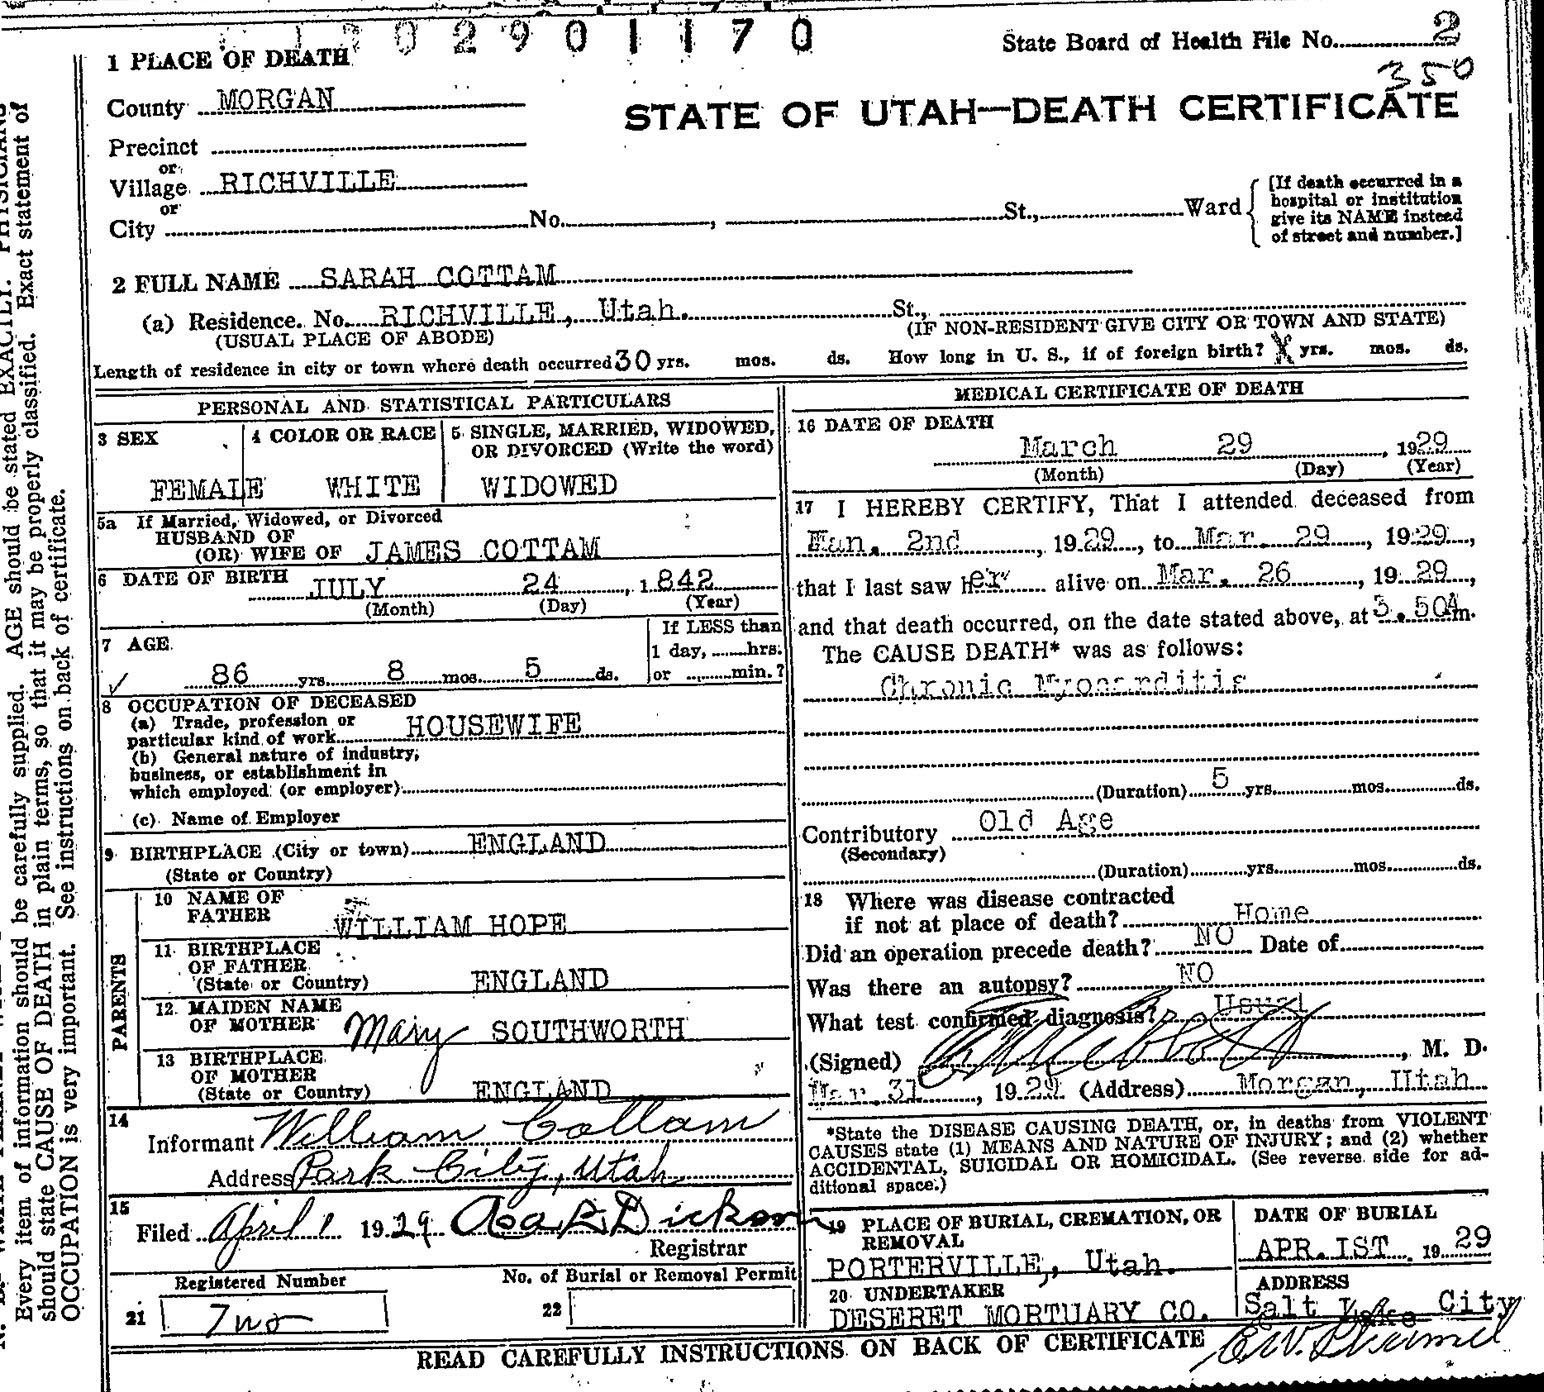 0 2 9 0 1 1 7 0
State Board of Health File No. 2
350
1 PLACE OF DEATH
County MORGAN
STATE OF UTAH—DEATH CERTIFICATE
Precinct
or
Village RICHVILLE
or
City No. , St., Ward
[If death occurred in a
hospital or institution
give its NAME instead
of street and number.]
2 FULL NAME SARAH COTTAM
(a) Residence. No. RICHVILLE, Utah. St.,
(USUAL PLACE OF ABODE) (IF NON-RESIDENT GIVE CITY OR TOWN AND STATE)
Length of residence in city or town where death occurred 30 yrs. mos. ds. How long in U. S., if of foreign birth? X yrs. mos. ds.
PERSONAL AND STATISTICAL PARTICULARS
3 SEX 4 COLOR OR RACE 5 SINGLE, MARRIED, WIDOWED,
OR DIVORCED (Write the word)
FEMALE WHITE WIDOWED
5a If Married, Widowed, or Divorced
HUSBAND OF
(OR) WIFE OF JAMES COTTAM
6 DATE OF BIRTH JULY 24, 1842
(Month) (Day) (Year)
7 AGE If LESS than
1 day, hrs.
86 yrs. 8 mos. 5 ds. or min.?
8 OCCUPATION OF DECEASED
(a) Trade, profession or
particular kind of work HOUSEWIFE
(b) General nature of industry,
business, or establishment in
which employed (or employer)
(c) Name of Employer
9 BIRTHPLACE (City or town) ENGLAND
(State or Country)
PARENTS
10 NAME OF
FATHER WILLIAM HOPE
11 BIRTHPLACE
OF FATHER
(State or Country) ENGLAND
12 MAIDEN NAME
OF MOTHER Mary SOUTHWORTH
13 BIRTHPLACE
OF MOTHER
(State or Country) ENGLAND
14
Informant William Cottam
Address Park City, Utah
15
Filed April 1 1929 Asa R Dickson
Registrar
Registered Number No. of Burial or Removal Permit
21 Two 22
MEDICAL CERTIFICATE OF DEATH
16 DATE OF DEATH
March 29, 1929
(Month) (Day) (Year)
17 I HEREBY CERTIFY, That I attended deceased from
2nd, 1929, to Mar. 29, 1929,
that I last saw her alive on Mar. 26, 1929,
and that death occurred, on the date stated above, at 3.50Am.
The CAUSE DEATH* was as follows:
Chronic Myocarditis
(Duration) 5 yrs. mos. ds.
Contributory Old Age
(Secondary)
(Duration) yrs. mos. ds.
18 Where was disease contracted
if not at place of death? Home
Did an operation precede death? NO Date of
Was there an autopsy? NO
What test confirmed diagnosis? Usual
(Signed) , M. D.
Mar. 31, 1929 (Address) Morgan, Utah
*State the DISEASE CAUSING DEATH, or, in deaths from VIOLENT
CAUSES state (1) MEANS AND NATURE OF INJURY; and (2) whether
ACCIDENTAL, SUICIDAL OR HOMICIDAL. (See reverse side for ad-
ditional space.)
19 PLACE OF BURIAL, CREMATION, OR
REMOVAL
PORTERVILLE, Utah.
DATE OF BURIAL
APR. IST. 1929
20 UNDERTAKER
DESERET MORTUARY CO.
ADDRESS
Salt Lake City
READ CAREFULLY INSTRUCTIONS ON BACK OF CERTIFICATE
Every item of information should be carefully supplied. AGE should be stated EXACTLY. PHYSICIANS
should state CAUSE OF DEATH in plain terms, so that it may be properly classified. Exact statement of
OCCUPATION is very important. See instructions on back of certificate.